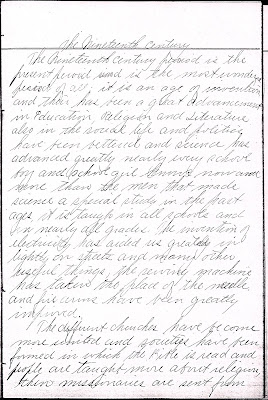 The Nineteenth Century
The Nineteenth Century period is the
present period and is the most wonderful
period of all; it is an age of invention
and there has been a great advancement
in Education, Religion and Literature
also in the social life and politics
have been bettered and science has
advanced greatly nearly every school
boy and school girl knows now and
more than the men that made
science a special study in the past
ages. It is taugh in all schools and
in nearly all grades. The invention of
electricity has aided us greatly in
lighting on streets and many other
useful things, the sewing machine
has taken the place of the needle
and fire arms have been greatly
improved.
The different churches have become
more united and societys have been
formed in which the Bible is read and
people are taught more about religion
there missionaries are sent from